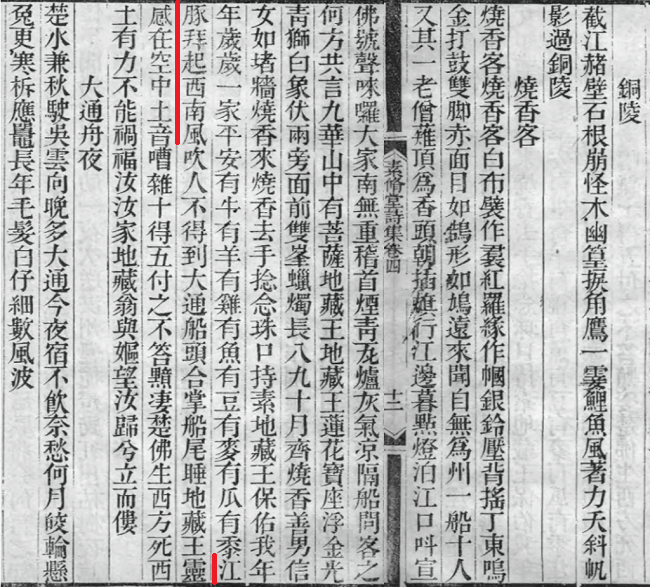 銅陵
截江赭壁石根崩怪木幽篁捩角鷹一霎鯉魚風著力夭斜帆
影過銅陵
燒香客
燒香客燒香客白布襞作裠紅羅緣作幗銀鈴壓背搖丁東嗚
金打鼓雙脚赤面目如鴿形如鳩遠來聞自無爲州一船十八
又其一老僧薙頂爲香頭朝插旗行江邊暮點燈泊江口呌宣
素脩堂詩集卷四
十二
佛號聲咪囉大家南無重稽首煙靑尨爐灰氣凉隔船問客之
何方共言九華山中有菩薩地藏王地藏王蓮花寶座浮金光
靑獅白象伏兩旁面前雙峯蠟燭長八九十月齊燒香善男信
女如堵牆燒香來燒香去手捻念珠口持素地藏王保佑我年
年歲歲一家平安有牛有羊有雞有魚有豆有麥有瓜有黍江
豚拜起西南風吹人不得到大通船頭合掌船尾睡地藏王靈
感在空中土音嘈雜十得五付之不答顰凄楚佛生西方死西
土有力不能禍福汝汝家地藏翁與嫗望汝歸兮立而僂
大通舟夜
楚水兼秋駛吳雲向晚多大通今夜宿不飮奈愁何月皎輪懸
兔更寒柝應鼉長年毛髮白仔細數風波